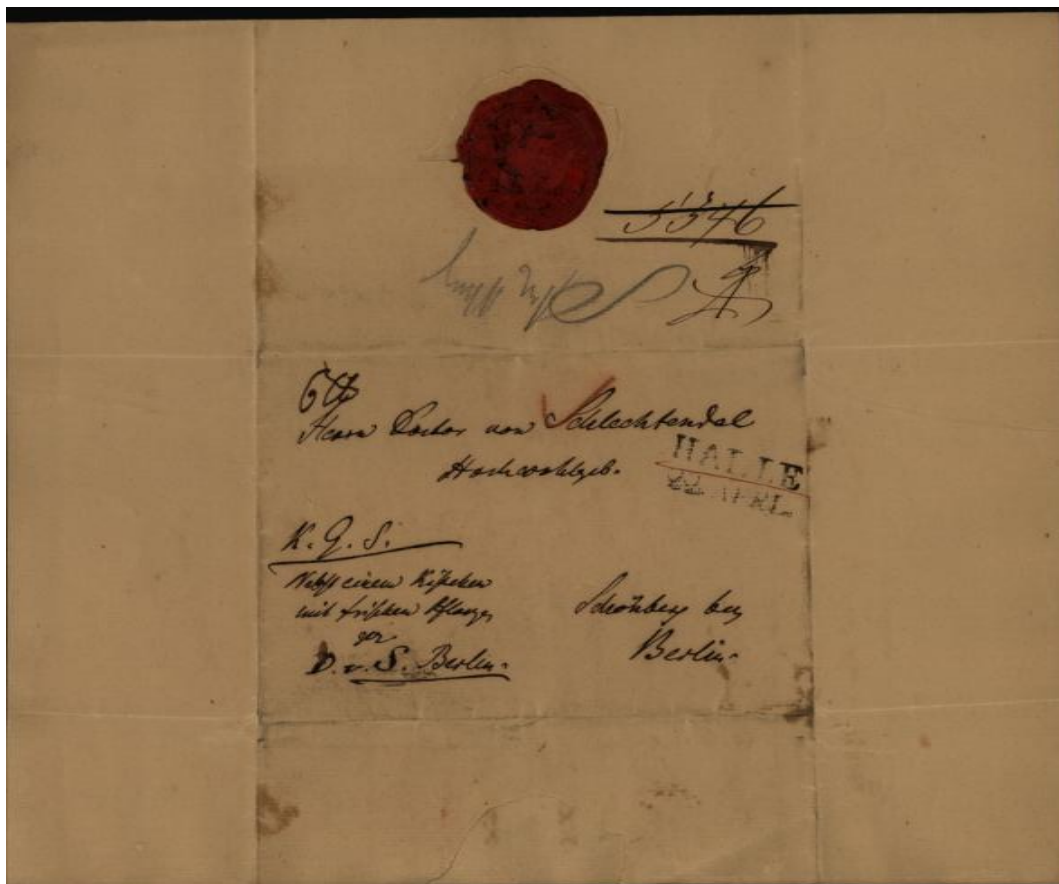 5546
6 ℔
Herrn Doctor von Schlechtendal
Hochwohlgeb.
HALLE
22 APRL.
K. G. S.
Nebst einem Kistchen
mit frischen Pflanzen
gez.
D. v. S. Berlin.
Schönberg bey
Berlin.